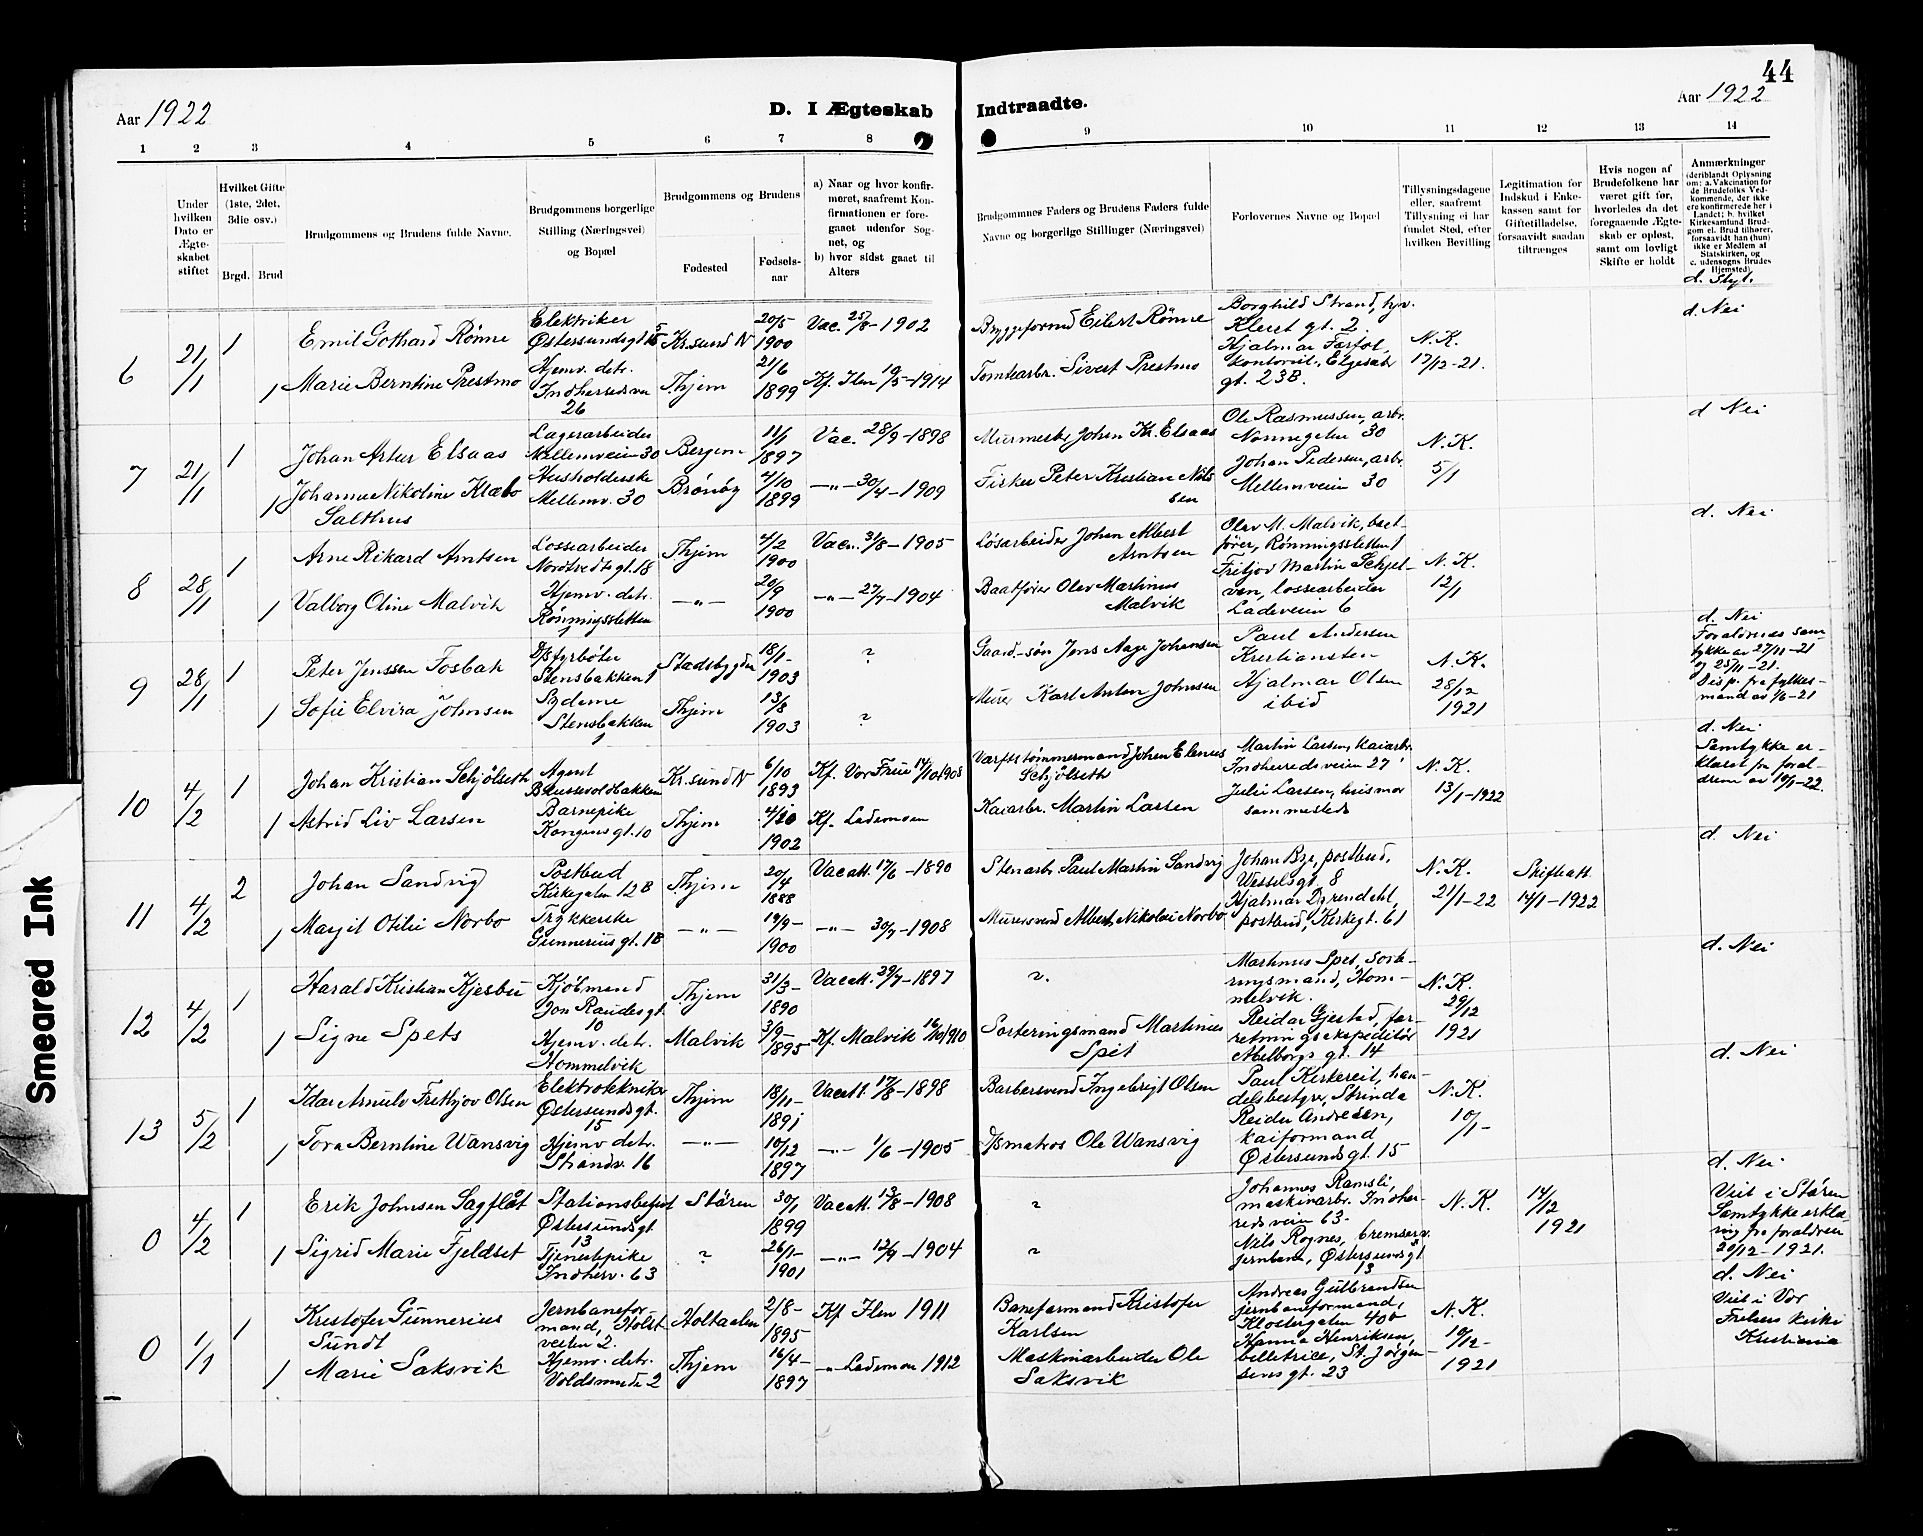 44
Aar 1922
D. I Ægteskab Indtraadte.
Aar 1922
1 2 3 4 5 6 7 8 9 10 11 12 13 14
Under hvilken Dato er Ægteskabet stiftet
Hvilket Gifte (1ste, 2det, 3die osv.)
Brgd. Brud
Brudgommens og Brudens fulde Navne.
Brudgommens borgerlige Stilling (Næringsvei) og Bopæl
Brudgommens og Brudens
Fødested
Fødselsaar
a) Naar og hvor konfirmeret, saafremt Konfirmationen er foregaaet udenfor Sognet, og
b) hvor sidst gaaet til Alters
Brudgommnes Faders og Brudens Faders fulde Navne og borgerlige Stillinger (Næringsvei)
Forlovernes Navne og Bopæl
Tillysningsdagene eller, saafremt Tillysning ei har fundet Sted, efter hvilken Bevilling
Legitimation for Indskud i Enkekassen samt for Giftetilladelse, forsaavidt saadan tiltrænges
Hvis nogen af Brudefolkene har været gift før, hvorledes da det foregaaende Ægteskab er opløst, samt om lovligt Skifte er holdt
Anmærkninger
(deriblandt Oplysning om: a. Vakcination for de Brudefolks Vedkommende, der ikke ere konfirmerede her i Landet; b. hvilket Kirkesamfund Brudgom el. Brud tilhører, forsaavidt han (hun) ikke er Medlem af Statskirken, og c. udensogns Brudes Hjemsted).
d. Slgt.
6
21/1
1
Emil Gothard Rønne
Elektriker
Østersundsgt 15
Kr.sund N
20/5
1900
Vac. 25/8-1902
Byggeformd Eilert Rønne
Borghild Strand, hjv.
Kleret gt. 2
N.K.
17/12-21.
d. Nei
1
Marie Berntine Prestmo
Hjemv. detr.
Indherredsvn
26
Thjem
21/6
1899
Kf. Ilen 10/5-1914
Tomtearbr. Sivert Prestmo
Hjalmar Færfot,
kontorist, Elgesæter
gt. 23B.
7
21/1
1
Johan Artur Elsaas
Lagerarbeider
Mellemveien 30
Bergen
11/1
1897
Vac. 28/9-1898
Murmester Johan Kr. Elsaas
Ole Rasmussen, arbr.
Nonnegaten 30
N.K.
5/1
d. Nei
1
Johanne Nikoline Klæbo
Salthus
Husholderske
Mellemv. 30
Brönöy
4/10
1899
-"- 30/4-1909
Fisker Peter Kristian Nilssen
Johan Pedersen, arbr.
Mellemveien 30
8
28/1
1
Arne Rikard Arntsen
Lossearbeider
Nordtvedtsgt. 18
Thjem
4/2
1900
Vac. 31/8-1905
Løsarbeider Johan Albert
Arntsen
Olav M. Malvik, baatfører, Rønningsletten 1
N.K.
12/1
d. Nei
1
Valborg Oline Malvik
Hjemv. detr.
Rønningsletten
1
-"-
20/9
1900
-"- 27/7-1904
Baatfører Olav Martinus
Malvik
Fritjov Martin Schjelven, lossearbeider
Ladeveien 6
9
28/1
1
Peter Jenssen Fosbak
D/S fyrbøter
Stensbakken 1
Stadsbygden
18/1-
1903
?
Gaard-søn Jens Aage Johansen
Paul Andersen
Kristiansten
N.K.
28/12
1921
d. Nei
Forældrenes samtykke av 27/11-21
og 25/11-21.
Disp. fra fylkesmand av 1/6-21
1
Sofie Elvira Johnsen
Syderne
Stensbakken
1
Thjem
13/8
1903
?
Murer Karl Anton Johnsen
Hjalmar Olsen
ibid
10
4/2
1
Johan Kristian Schjölseth
Agent
Bakke
Kr.sund N
6/10
1893
Kf. Vor Frue 14/10 1908
Værftstømmermand Johan Elenus
Schjölseth
Martin Larsen, kaiarbr.
Indherredsveien 27
N.K.
13/1-1922
d. Nei
Samtykke erklæret fra forældrene av 10/1-22.
1
Astrid Liv Larsen
Barnepike
Kongensgt. 10
Thjem
4/10
1902
Kf. Lademoen
Kaiarbr. Martin Larsen
Julie Larsen, husmor
sammesteds
11
4/2
2
Johan Sandvig
Postbud
Kirkegaten 12B
Thjem
20/4
1888
Vacatt 17/6-1890
Stenarbr. Paul Martin Sandvig
Johan Bye, postbud,
Wesselsgt. 8
N.K.
21/1-22
Skifteatt.
14/1-1922
d. Nei
1
Marjit Otilie Norbo
Trykkerske
Gunnerius gt. 1B
-"-
19/9-
1900
-"- 30/7-1908
Murersvend Albert Nikolai Norbo
Hjalmar Dyrendahl,
postbud, Kirkegt. 61
12
4/2
1
Harald Kristian Kjesbu
Kjøbmand
Jon Raudesgt.
10
Thjem
31/3-
1890
Vacatt. 29/7-1897
?
Martinus Spet, sorteringsmand, Hommelvik.
N.K.
29/12
1921
d. Nei
1
Signe Spets
Hjemv. detr.
Hommelvik
Malvik
3/9-
1895
Kf. Malvik 16/10 1910
Sorteringsmand Martinus
Spet
Reidar Gjestad, forretningsekspeditør
Abelborgs gt. 14
13
5/2
1
Idar Arnulv Frithjov Olsen
Elektrotekniker
Østersundsgt.
15
Thjem
18/11-
1891
Vacatt 17/8-1898
Barbersvend Ingebrigt Olsen
Paul Kirkereit, handelsbestyr., Strinda
N.K.
10/1-
d. Nei
1
Tora Berntine Wansvig
Hjemv. detr.
Strandv. 16
-"-
10/12
1897
-"- 1/6-1905
D/S matros Ole Wansvig
Reidar Andresen,
kaiformand
Østersundsgt. 15
0
4/2
1
Erik Johnsen Sagflåt
Stationsbetjent
Østersundsgt
13
Stören
30/1
1899
Vacatt 13/8-1908
?
Johannes Ramsli,
maskinarbr. Indherredsveien 63.
N.K.
14/12
1921
d. Nei
Viet i Stören
Samtykke erklæring fra forældrene
20/12-1921.
1
Sigrid Marie Fjeldset
Tjenestepike
Indherv. 63
?
26/1-
1901
-"- 12/9-1904
?
Nils Rognes, bremser v.
jernbane, Østersundsgt
13
0
1/1
1
Kristofer Gunnerius
Sundt
Jernbaneformand, Holstveiten 2.
Holtaalen
2/8-
1895
Kf Ilen 1911
Baneformand Kristofer
Karlsen
Andreas Gulbrandsen
jernbaneformand,
Klostergaten 40b
N.K.
10/12-
1921
d. Nei
Viet i Vor
Frelsers kirke
Kristiania
1
Marie Saksvik
Hjemv. detr.
Voldsminde 2
Thjem
16/4-
1897
-"- Lademoen 1912
Maskinarbeider Ole
Saksvik
Hanna Henriksen,
billetrice, St. Jørgensensgt. 23
Smeared Ink